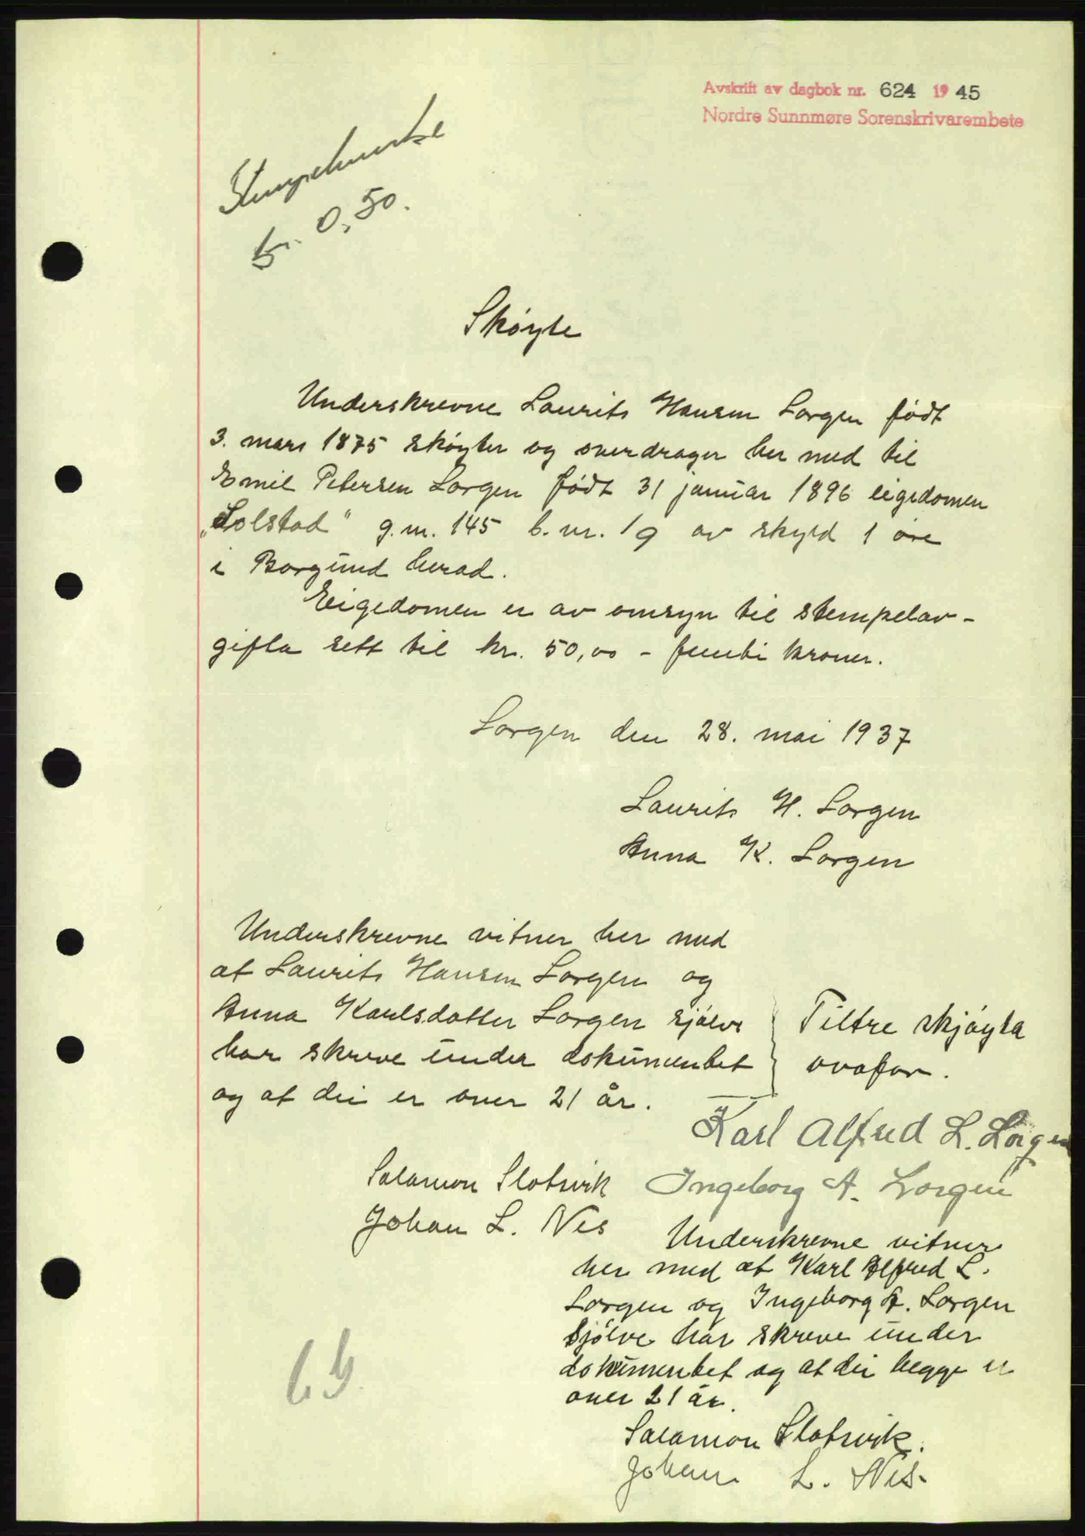 Avskrift av dagbok nr. 624 1945
Nordre Sunnmøre Sorenskrivarembete
Stempelmerke
kr. 0,50.
Skøyte
Underskrevne Laurits Hansen Lorgen født
3. mars 1875 skøyter og overdrager her med til
Emil Petersen Lorgen født 31 januar 1896 eigedomen
„Solstad" g.nr. 145 b.nr. 19 av skyld 1 øre
i Borgund herad.
Eigedomen er av omsyn til stempelav-
gifta sett til kr. 50,00 - femti kroner.
Lorgen den 28. mai 1937
Laurits H. Lorgen
Anna K. Lorgen
Underskrevne vitner her med
at Laurits Hansen Lorgen og
Anna Karlsdatter Lorgen sjølve
har skreve under dokumentet
og at dei er over 21 år.
Salamon Slotsvik
Johan L. Nes
Tiltre skjøyta
ovafor.
Karl Alfred L. Lorgen
Ingeborg A. Lorgen
Underskrevne vitner
her med at Karl Alfred L.
Lorgen og Ingeborg A. Lorgen
sjølve har skreve under
dokumentet og at dei begge er
over 21 år.
Salamon Slotsvik.
Johan L. Nes.